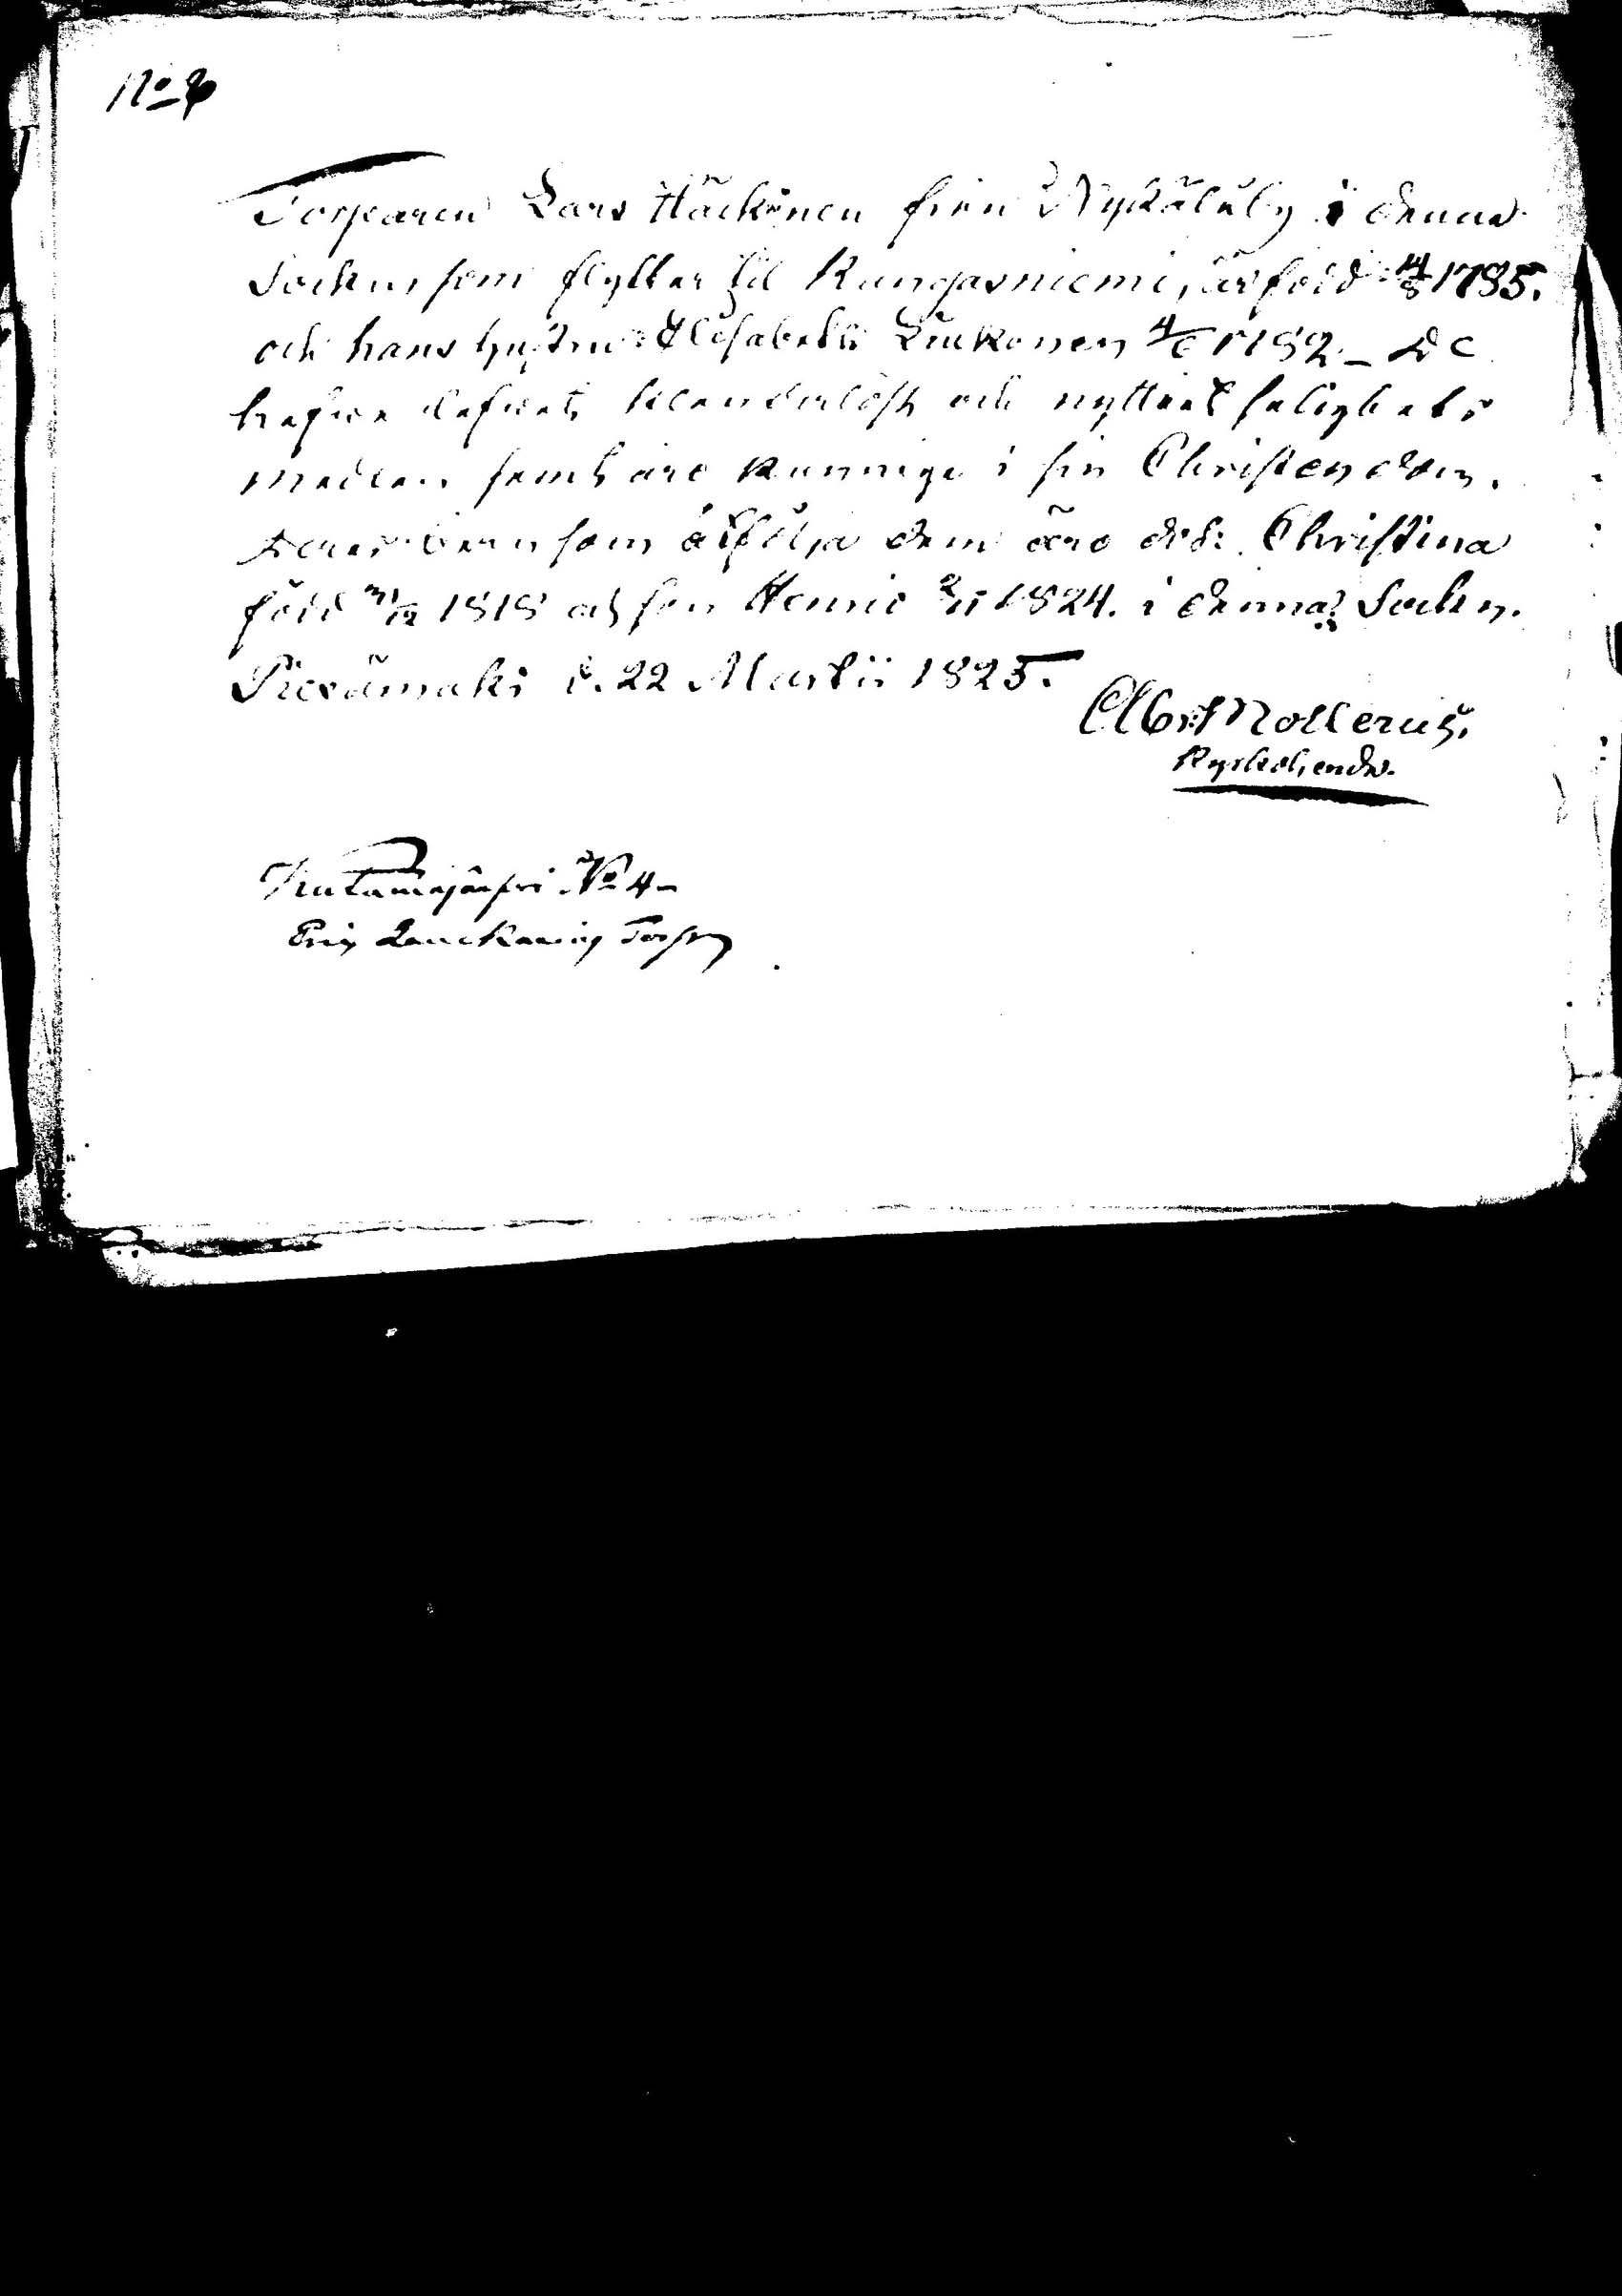 No
Torparen Lars Häckinen från Nyckäläby i denna
Sockn, som flyttar til Kangasniemi, är född 14/8 1785.
och hans hustru Elisabeth Liukonen 4/6 1782 – De
hafva lefvat klanderlöst och nyttiat salighets
medlen samt äro kunnige i sin Christendom.
barn som åtfölja dem äro dot: Christina
född 1818 och son Henric 2/11 1824. i denna Sockn.
Piexämäki d. 22 Martii 1825.
Nollerus.
Kyrkoherde.
No 4 –
Eric Torp